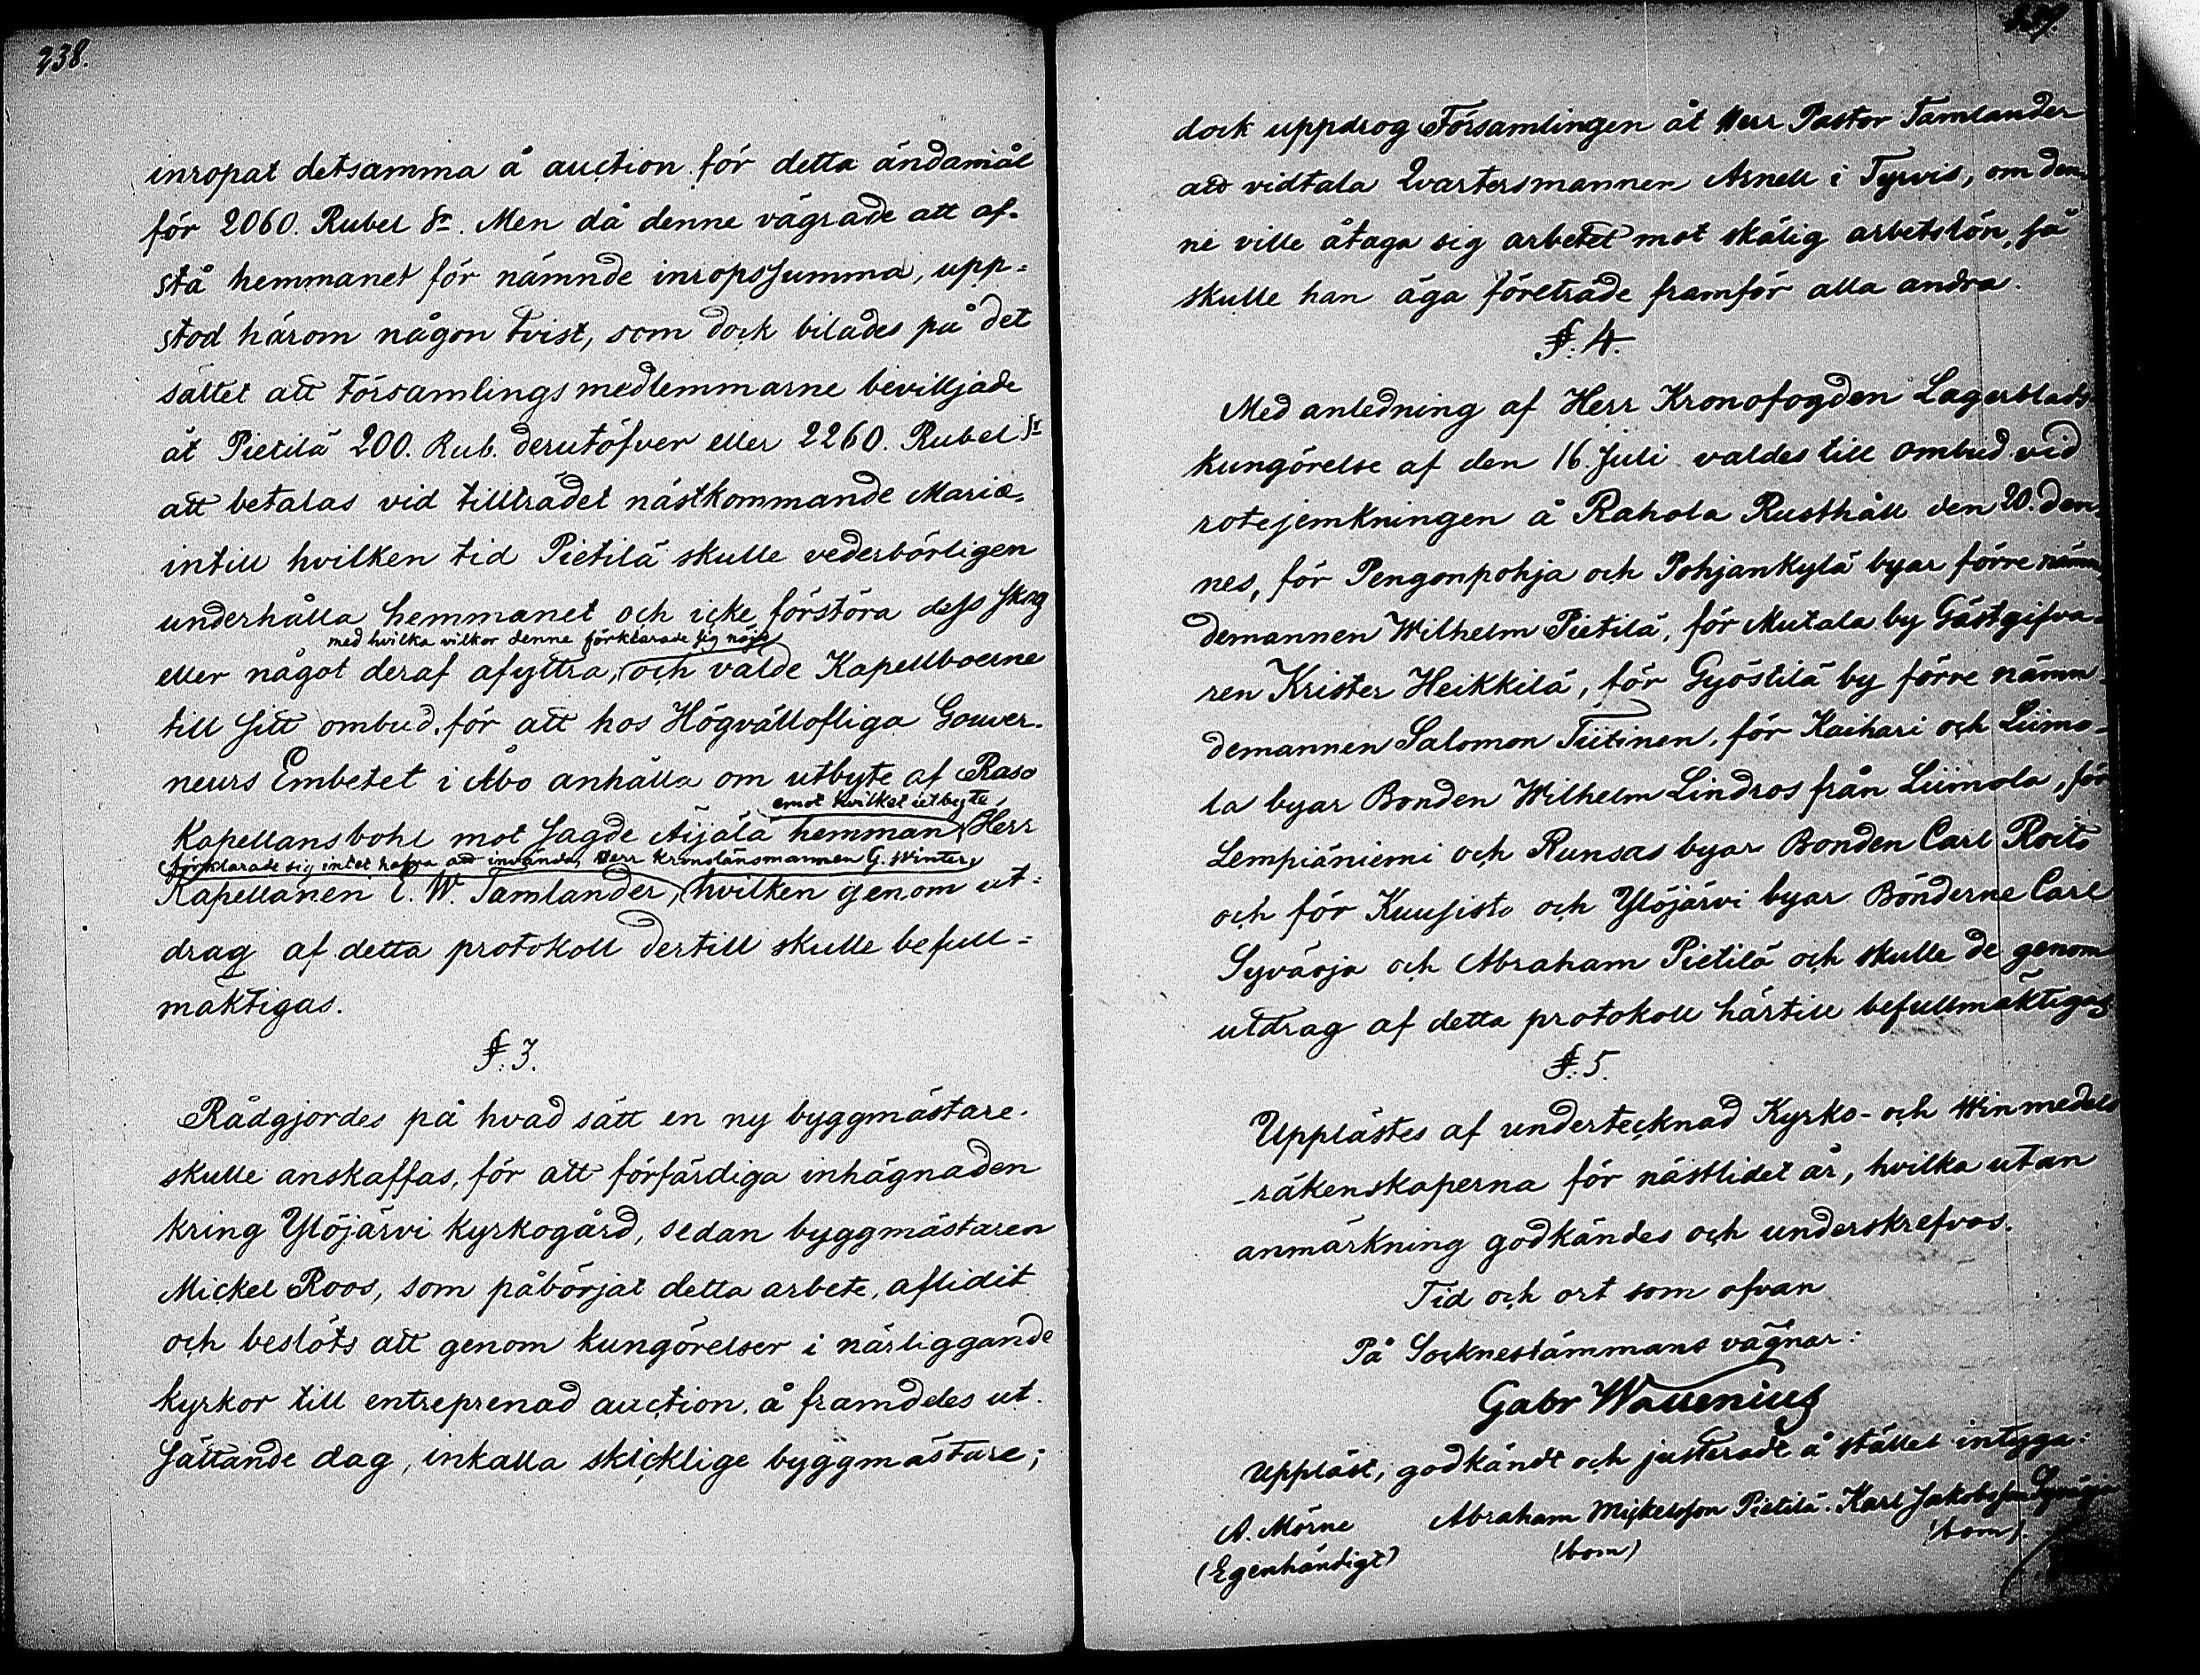 238.
inropat detsamma å auction för detta ändamål
för 2060. Rubel Sr. Men då denne vägrade att af-
stå hemmanet för nämnde inropssumma, upp=
stod härom någon tvist, som dock bilades på det
sättet att Församlingsmedlemmarne bevilljade
åt Pietilä 200. Rub. derutöfver eller 2260. Rubel Sr
att betalas vid tillträdet nästkommande Mariæ,
intill hvilken tid Pietilä skulle vederbörligen
underhålla hemmanet och icke förstöra dess skog
med hvilka vilkor denne förklarade sig nöjd
eller något deraf afyttra, och valde Kapellboerne
till sitt ombud för att hos Högvällofliga Gouver-
neurs Embetet i Åbo anhålla om utbyte af Raso
emot hvilket utbyte
Kapellansbohl mot sagde Äijälä hemman, Herr
förklarade sig intet hafva att invända, Herr Kronolänsmannen G. Winter,
Kapellanen C. W. Tamlander, hvilken genom ut=
drag af detta protokoll dertill skulle befull=
mäktigas.
§. 3.
Rådgjordes på hvad sätt en ny byggmästare
skulle anskaffas, för att förfärdiga inhägnaden
kring Ylöjärvi kyrkogård, sedan byggmästaren
Mickel Roos, som påbörjat detta arbete, aflidit
och beslöts att genom kungörelser i närliggande
kyrkor till entreprenad auction å framdeles ut-
sättande dag, inkalla skicklige byggmästare;
239.
dock uppdrog Församlingen åt Herr Pastor Tamlander
att vidtala Qvartersmannen Arnell i Tyrvis, om den-
ne ville åtaga sig arbetet mot skälig arbetslön, så
skulle han äga företräde framför alla andra.
§. 4.
Med anledning af Herr Kronofogden Lagerblads
kungörelse af den 16 Juli valdes till ombud vid
rotejemkningen å Rahola Rusthåll den 20. den-
nes, för Pengonpohja och Pohjankylä byar förre näm-
demannen Wilhelm Pietilä, för Mutala by Gästgifva-
ren Krister Heikkilä, för Gyöstilä by förre näm-
demannen Salomon Tiitinen, för Kaihari och Liimo-
la byar Bonden Wilhelm Lindros från Liimola, för
Lempiäniemi och Runsas byar Bonden Carl Roito
och för Kuusisto och Ylöjärvi byar Bönderne Carl
Syväoja och Abraham Pietilä och skulle de genom
utdrag af detta protokoll härtill befullmäktigas.
§. 5.
Upplästes af undertecknad Kyrko- och Winmedels
-räkenskaperna för nästlidet år, hvilka utan
anmärkning godkändes och underskrefvos.
Tid och ort som ofvan
På Socknestämmans vägnar:
Gabr Wallenius
Uppläst, godkändt och justeradt å stället intyga:
A. Mörne Abraham Mickelsson Pietilä. Karl Jakobsson Syväoja
(Egenhändigt) (bom) (bom).